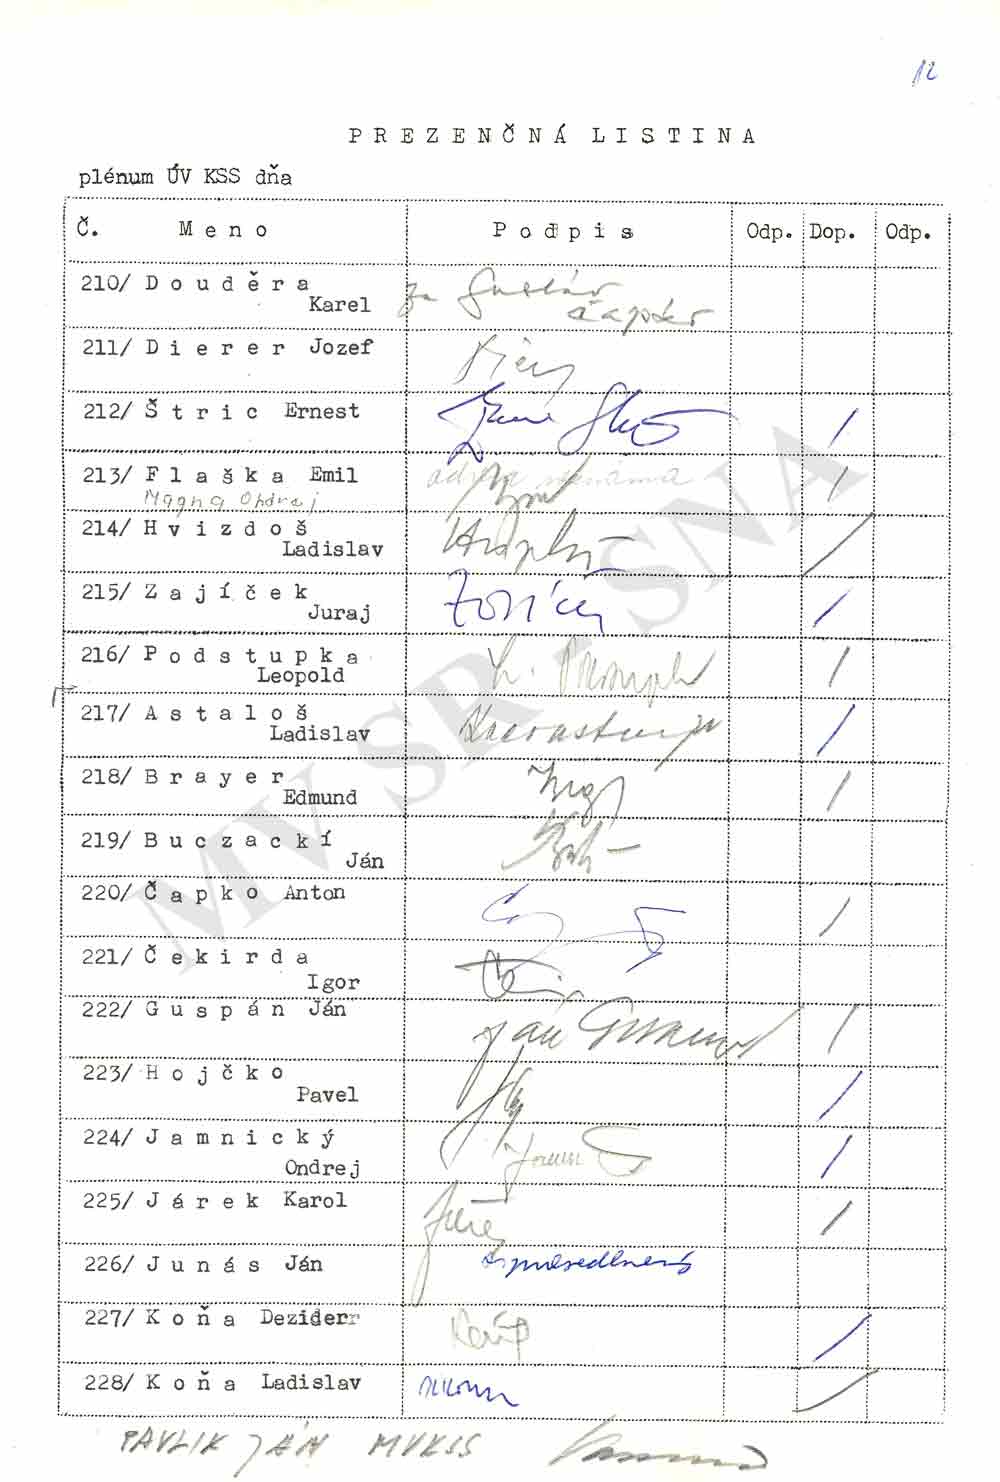 12
PREZENČNÁ LISTINA
plénum ÚV KSS dňa
Č. Meno Podpis Odp. Dop. Odp.
210/ Douděra za Gustáv
Karel
211/ Dierer Jozef
212/ Štric Ernest
213/ Flaška Emil adresa neznáma
Magna Ondrej
214/ Hvizdoš
Ladislav
215/ Zajíček
Juraj
216/ Podstupka
Leopold
217/ Astaloš
Ladislav
218/ Brayer
Edmund
219/ Buczackí
Ján
220/ Čapko Anton
221/ Čekirda
Igor
222/ Guspán Ján
Ján
223/ Hojčko
Pavel
224/ Jamnický
Ondrej
225/ Járek Karol
226/ Junás Ján ospravedlnený
227/ Koňa Deziderr
228/ Koňa Ladislav
PAVLIK JÁN MVKSS
MV SR - SNA